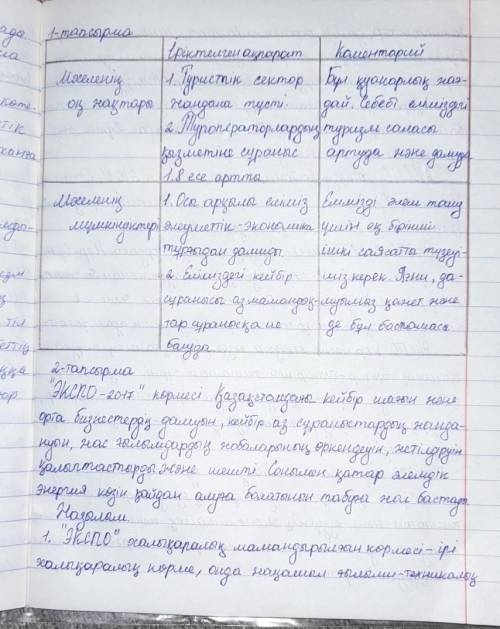 1-тапсырма
Іріктелген ақпарат
Коментарий
Мәселенің
оң жақтары
1. Туристік сектор
жандана түсті.
2. Туроператорлардың
қызметіне сұраныс
1.8 есе артта
Бұл қуанарлық жағ-
дай. Себебі еліміздегі
туризм саласы
артуда және дамуда
Мәселенің
мүмкіндіктері
1. Осы арқылы еліміз
әлеуметтік-экономика
тұрғыдан дамиды
2. Еліміздегі кейбір
сұранысы аз мамандық-
тар сұранысқа ие
Елімізді әлем тану
үшін ең бірінші
ішкі саясатты түзеуі-
міз керек. Яғни, да-
муымыз қажет және
де бұл бастамасы.
2-тапсырма
"ЭКСПО-2017" көрмесі Қазақстандағы кейбір шағын және
орта бизнестердің дамуын, кейбір аз сұраныстардың жанда-
нуын, жас ғылымдардың жобаларының өркендеуін, жетілдіруін
қалыптастырды және шешті. Сонымен қатар әлемдік
энергия көзін қайдан алуға болатынын табуға жол бастады
Жазылым.
1. "ЭКСПО" халықаралық мамандырылған көрмесі - ірі
халықаралық көрме, онда жаңашыл ғылыми-техникалық